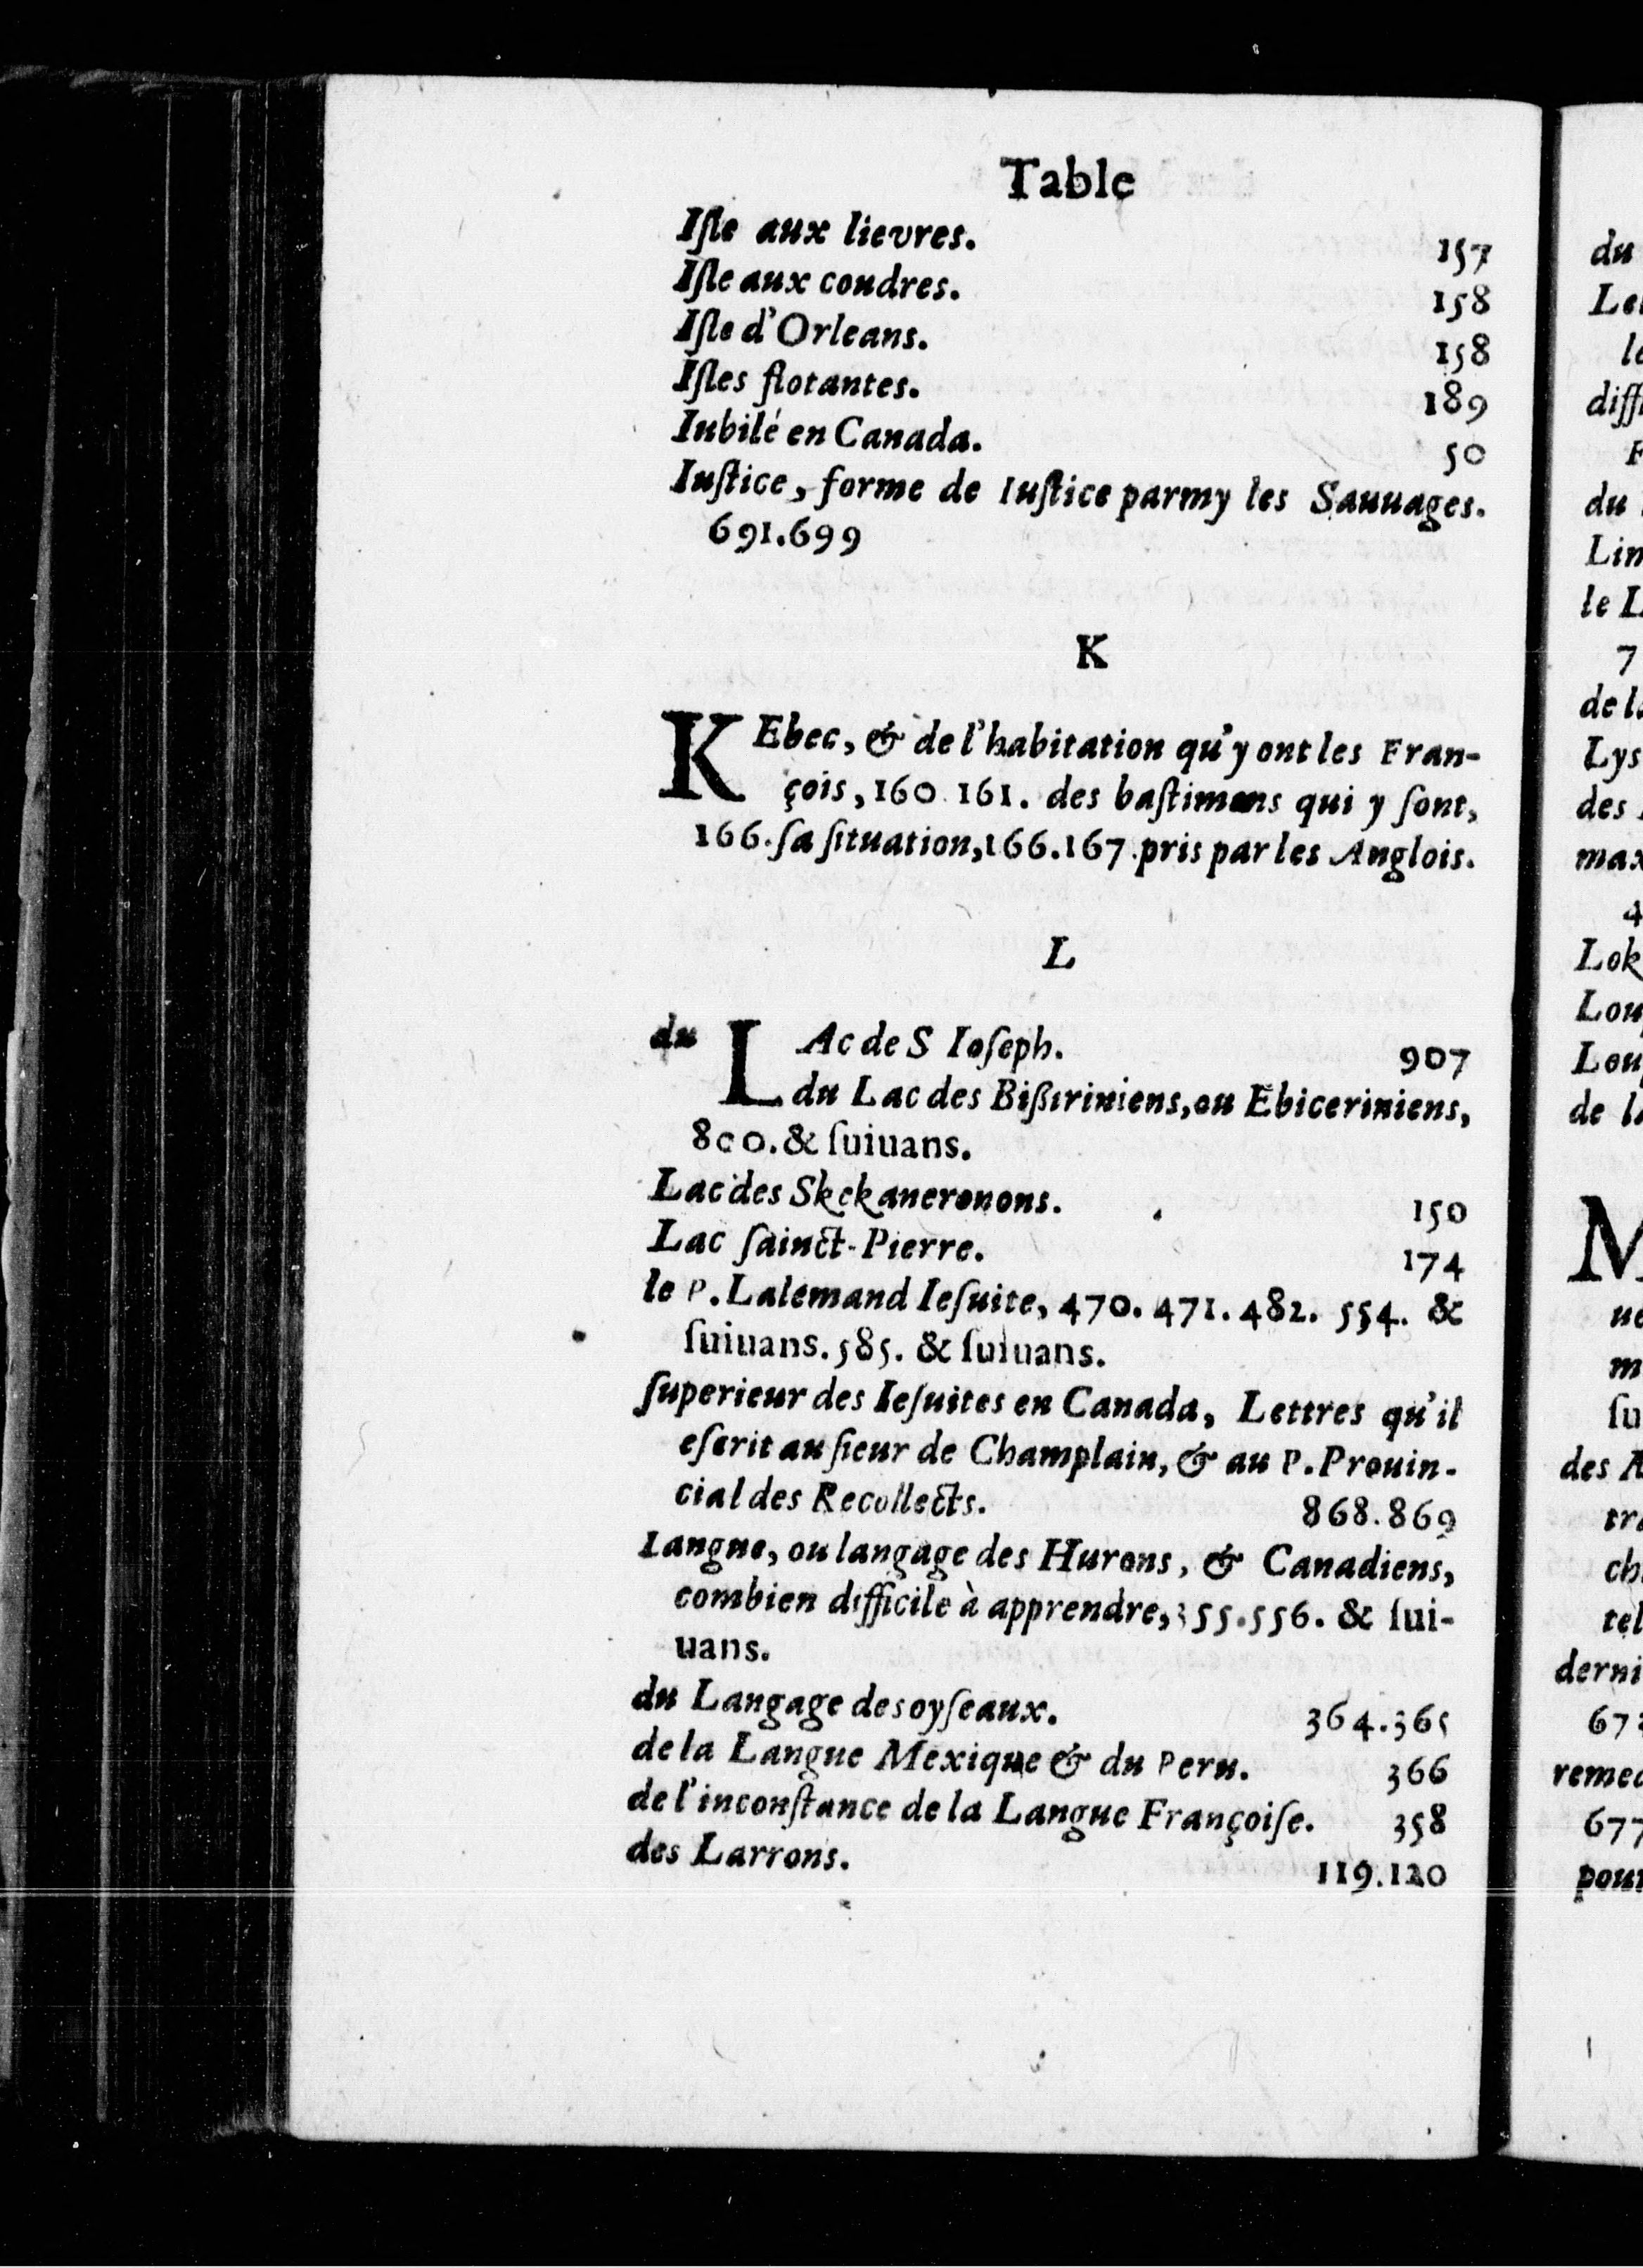 Table
Iſle aux lievres. 157
Iſle aux coudres. 158
Iſle d'Orleans. 158
Iſles flotantes. 189
Iubilé en Canada. 50
Iuſtice, forme de Iuſtice parmy les Sauuages.
691.699
K
KEbec, & de l'habitation qu'y ont les Fran-
çois, 160 161. des baſtimens qui y ſont,
166. ſa ſituation, 166.167. pris par les Anglois.
L
du LAc de S Ioſeph. 907
du Lac des Bißiriniens, ou Ebiceriniens,
800. & ſuiuans.
Lac des Skekaneronons. 150
Lac ſainct-Pierre. 174
le P. Lalemand Ieſuite, 470. 471. 482. 554. &
ſuiuans. 585. & ſuiuans.
ſuperieur des Ieſuites en Canada, Lettres qu'il
eſcrit au ſieur de Champlain, & au P. Prouin-
cial des Recollects. 868.869
Langue, ou langage des Hurons, & Canadiens,
combien difficile à apprendre, 355.556. & ſui-
uans.
du Langage des oyſeaux. 364.365
de la Langue Mexique & du Peru. 366
de l'inconſtance de la Langue Françoiſe. 358
des Larrons. 119.120
du
diff
du
le L
7
Lys
des
max
4
Lok
Lou
de la
M
des A
derni
677
pour